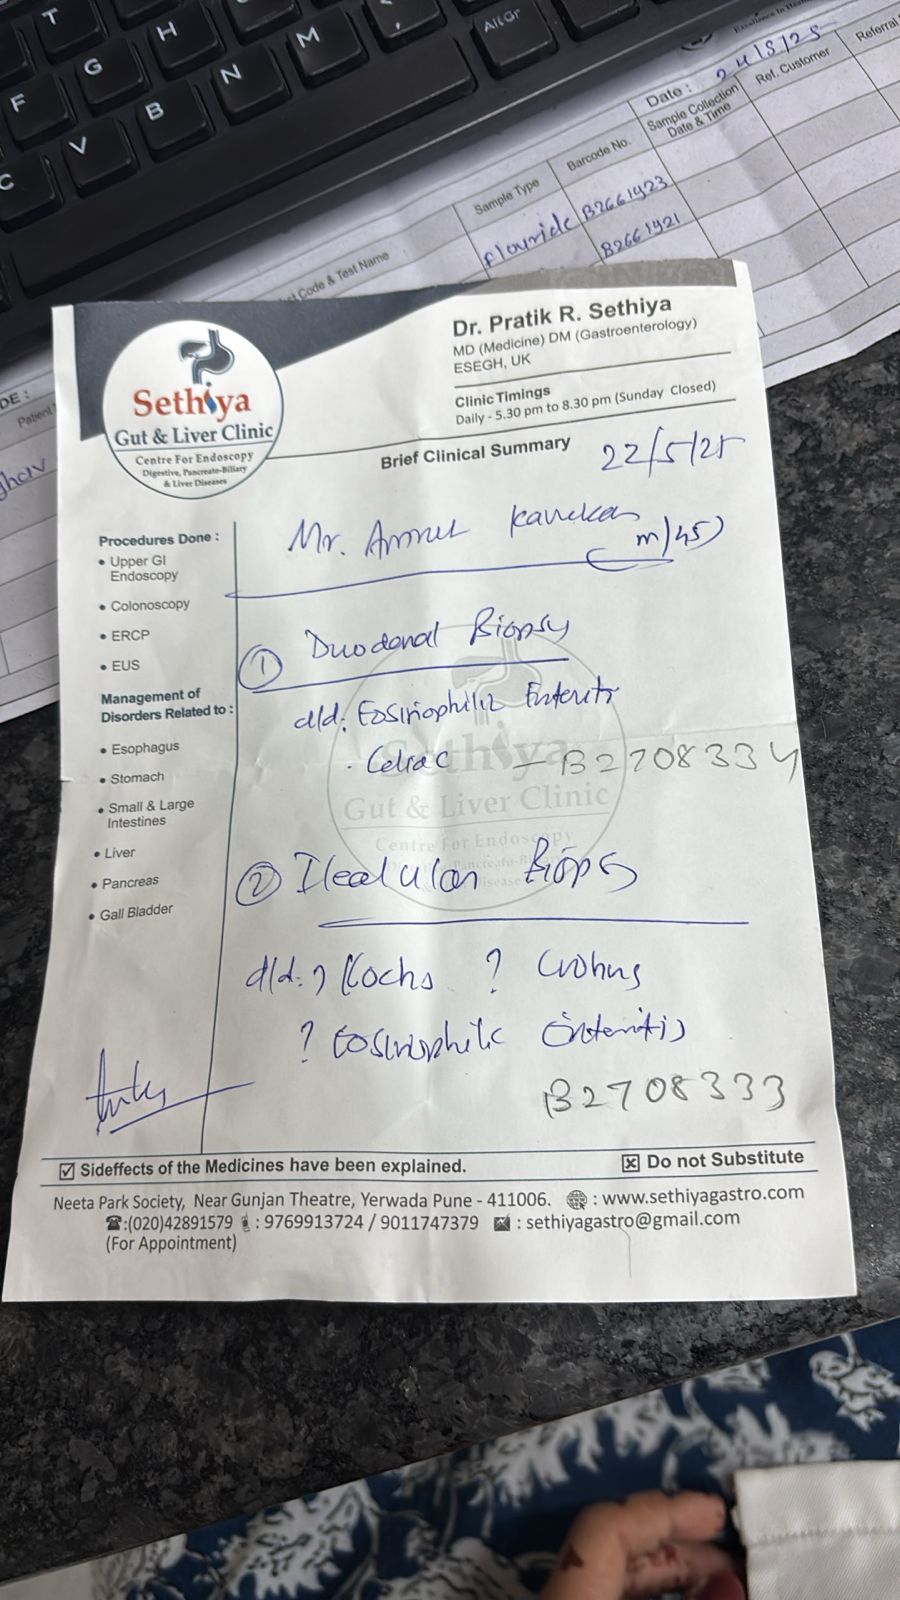 T
H
F
G
M
AltGr
N
B
V
C
Date : 24/5/25
Referral
Sample Type
Barcode No.
Sample Collection
Date & Time
Ref. Customer
Code & Test Name
flouride
B2661423
B2661421
DE :
Patient
Sethiya
Gut & Liver Clinic
Centre For Endoscopy
Digestive, Pancreato-Biliary
& Liver Diseases
Dr. Pratik R. Sethiya
MD (Medicine) DM (Gastroenterology)
ESEGH, UK
Clinic Timings
Daily - 5.30 pm to 8.30 pm (Sunday Closed)
Brief Clinical Summary
22/5/25
Mr. Kanekar
M/45)
Procedures Done :
• Upper GI
Endoscopy
• Colonoscopy
• ERCP
• EUS
Management of
Disorders Related to :
• Esophagus
• Stomach
• Small & Large
Intestines
• Liver
• Pancreas
• Gall Bladder
① Duodenal Biopsy
d/d: Eosinophilic Enteritis
· Celiac - B2708334
Sethiya
Gut & Liver Clinic
Centre For Endoscopy
② Ileal ulcer Biopsy
d/d: ? Kochs ? Crohns
? Eosinophilic Enteritis
B2708333
☑ Sideffects of the Medicines have been explained.
☒ Do not Substitute
Neeta Park Society, Near Gunjan Theatre, Yerwada Pune - 411006. : www.sethiyagastro.com
:(020)42891579 : 9769913724 / 9011747379 : sethiyagastro@gmail.com
(For Appointment)